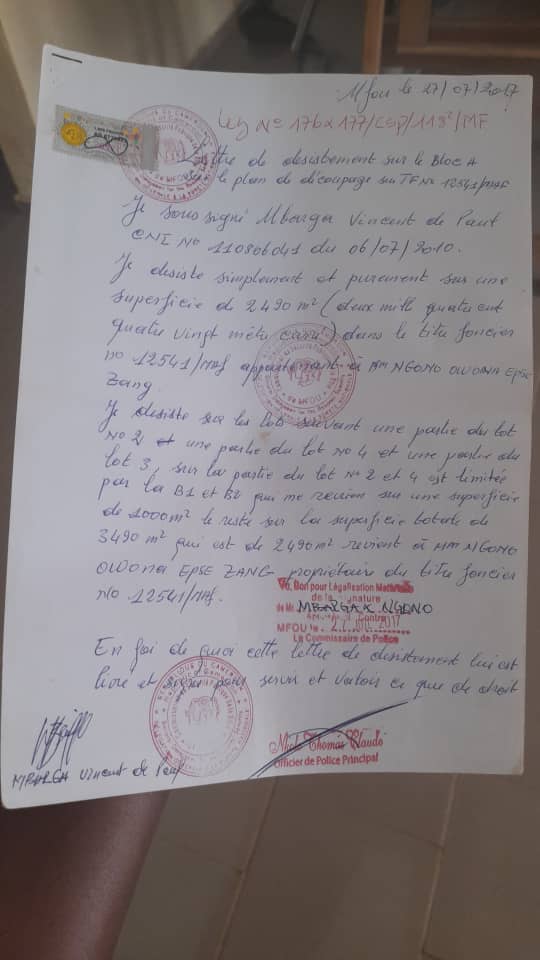 Mfou le 27/07/2017
Leg No 176 x 177/CSP/118²/MF
Lettre de desistement sur le Bloc A
le plan de découpage sur TF No 12541/Maf
Je sous signé Mbarga Vincent de Paul
CNI No 110806041 du 06/07/2010.
Je desiste simplement et purement sur une
superficie de 2490 m² (deux mille quatre cent
quatre vingt mètre carré) dans le titre foncier
no 12541/Maf appartenant à Mm NGONO OWONA EPSE
Zang.
Je desiste sur les lots suivant une partie du lot
No 2 et une partie du lot No 4 et une partie du
lot 3, sur la partie du lot No 2 et 4 est limitée
par la B1 et B2 qui me revien sur une superficie
de 1000m² le reste sur la superficie totale de
3490 m² qui est de 2490m² revient à Mm NGONO
OWONA EPSE ZANG propriétaire du titre foncier
No 12541/Maf.
Vu, Bon pour Légalisation Matérielle
de la Signature
de Mr MBARGA x NGONO
MFOU le 27 2017
Le Commissaire de Police
En foi de quoi cette lettre de desistement lui est
livré et pour servir et valoir ce que de droit
MBARGA Vincent de Paul
Thomas Claude
Officier de Police Principal
REPUBLIQUE DU CAMEROUN
DE MFOU
DE MFOU
REPUBLIQUE DU CAMEROUN